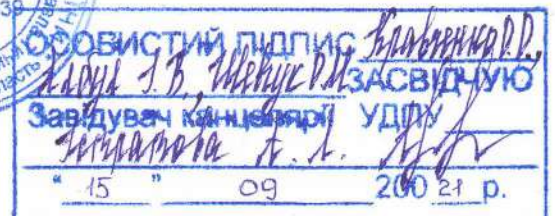 39
ОСОБИСТИЙ ПІДПИС Кравченко О.О.,
Албул І. В., Шевчук О.М. ЗАСВІДЧУЮ
Завідувач канцелярії УДПУ
А. А.
" 15 " 09 200 21 р.